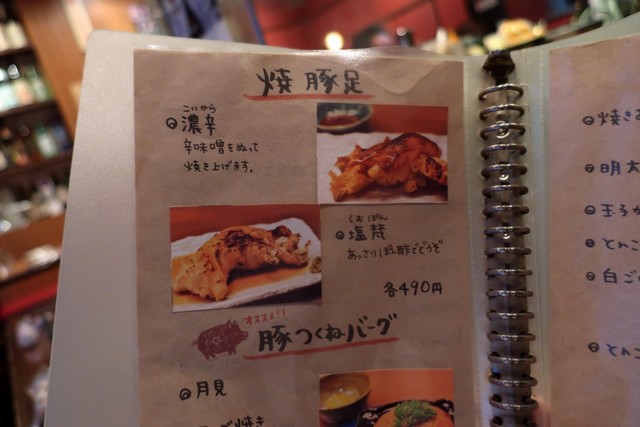 焼豚足
こいから
◎濃辛
辛味噌をぬって
焼き上げます。
しおぽん
◎塩梵
あっさりぽん酢でどうぞ
各490円
オススメ!!
豚つくねバーグ
◎月見
焼き
◎焼き
◎明太
◎玉子か
◎とんこ
◎白ご
◎とんこ